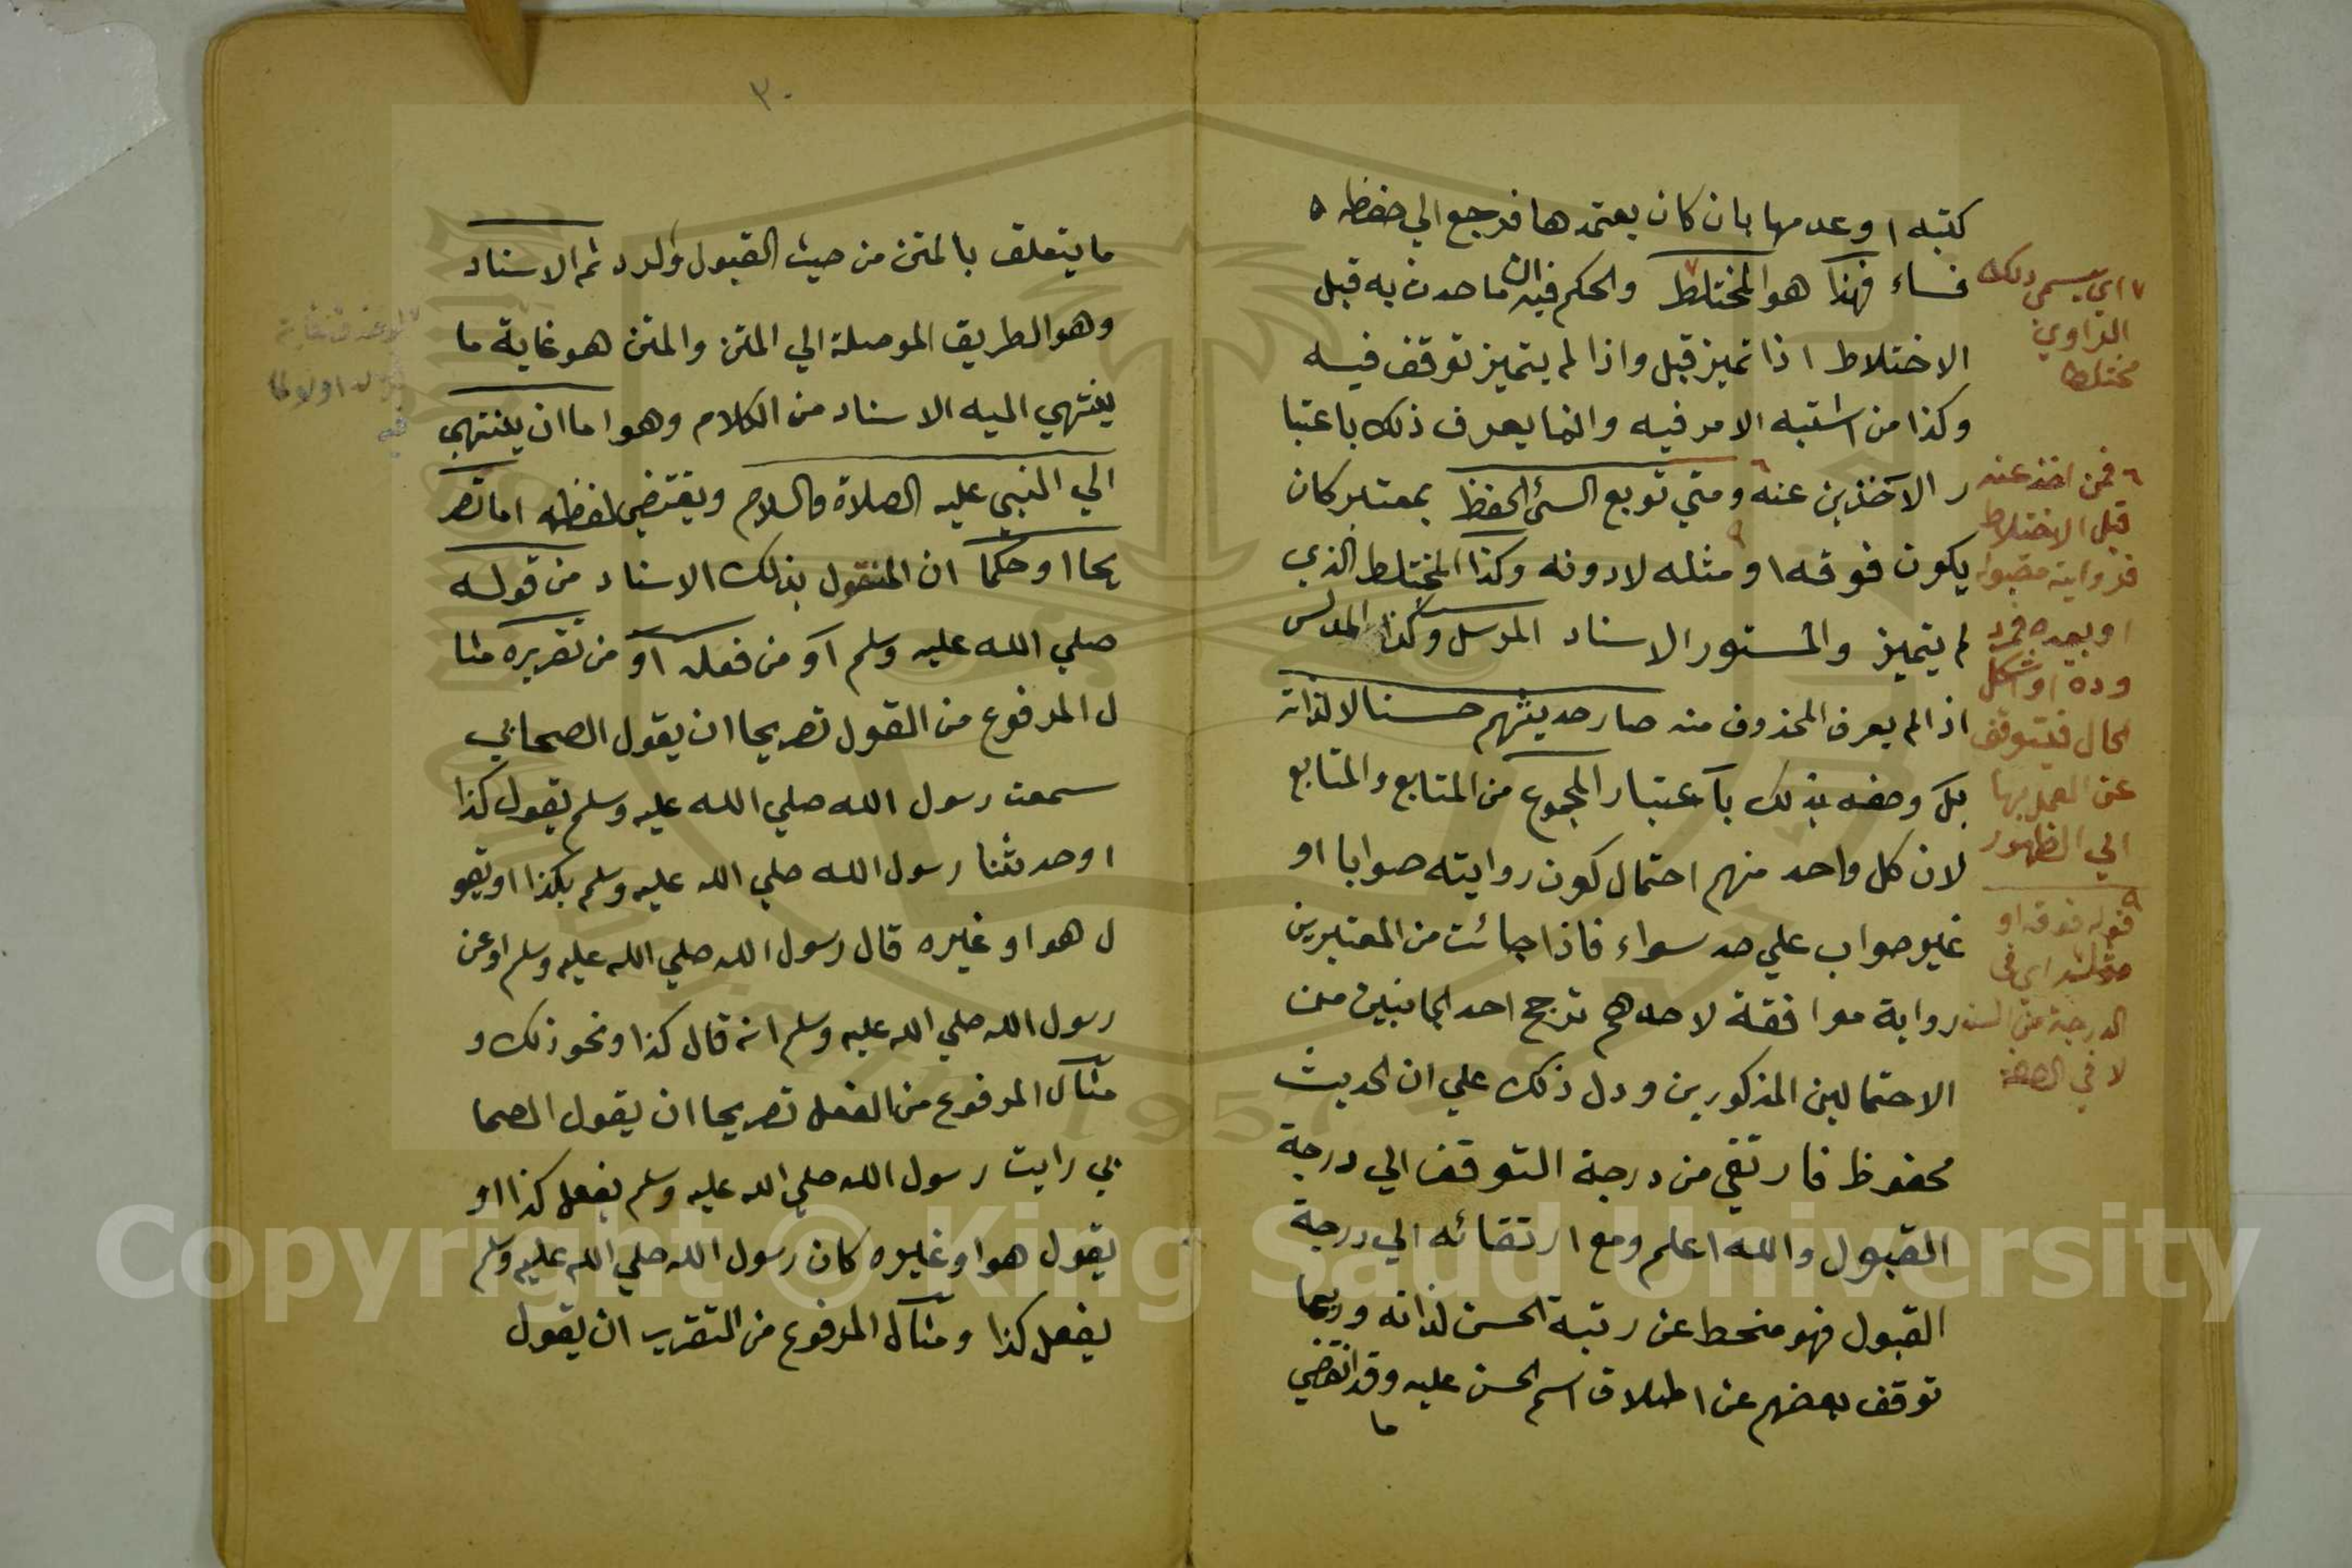 كتبه اوعدمها بان كان يعتمدها فرجع الي حفظه
فساء فهذا هو المختلط والحكم فيه ان ما حدث به قبل
الاختلاط اذا تميز قبل واذا لم يتميز توقف فيه
وكذا من اشتبه الامر فيه وانما يعرف ذلك باعتبا
ر الآخذين عنه ومتي توبع السئ الحفظ بمعتبر كان
يكون فوقه او مثله لا دونه وكذا المختلط الذي
لم يتميز والمستور الاسناد المرسل وكذا المدلس
اذا لم يعرف المحذوف منه صار حديثهم حسنا لا لذاته
بل وصفه بذلك باعتبار المجموع من المتابع والمتابع
لان كل واحد منهم احتمال كون روايته صوابا او
غير صواب علي حد سواء فاذا جائت من المعتبرين
رواية موافقة لاحدهم ترجح احد الجانبين من
الاحتمالين المذكورين ودل ذلك علي ان الحديث
محفوظ فارتقي من درجة التوقف الي درجة
القبول والله اعلم ومع ارتقائه الي درجة
القبول فهو منحط عن رتبة الحسن لذاته وربما
توقف بعضهم عن اطلاق اسم الحسن عليه وقد انقضي
ما
٧ اي يسمي ذلك
الراوي
مختلطا
٦ فمن اخذ عنه
قبل الاختلاط
فروايته مقبولة
او بعده فمرد
وده او اشكل
الحال فيتوقف
عن العمل بها
الي الظهور
٩
قوله فوقه او
مثله اي في
الدرجة من السند
لا في الصفة
٣٠
ما يتعلق بالمتن من حيث القبول والرد ثم الاسناد
وهو الطريق الموصلة الي المتن والمتن هو غاية ما
ينتهي اليه الاسناد من الكلام وهو اما ان ينتهي
الي النبي عليه الصلاة والسلام ويقتضي لفظه اما تصر
يحا او حكما ان المنقول بذلك الاسناد من قوله
صلي الله عليه وسلم او من فعله او من تقريره مثا
ل المرفوع من القول تصريحا ان يقول الصحابي
سمعت رسول الله صلي الله عليه وسلم يقول كذا
او حدثنا رسول الله صلي الله عليه وسلم بكذا او يقو
ل هو او غيره قال رسول الله صلي الله عليه وسلم او عن
رسول الله صلي الله عليه وسلم انه قال كذا ونحو ذلك و
مثال المرفوع من الفعل تصريحا ان يقول الصحا
بي رايت رسول الله صلي الله عليه وسلم يفعل كذا او
يقول هو او غيره كان رسول الله صلي الله عليه وسلم
يفعل كذا ومثال المرفوع من التقرير ان يقول
Copyright © King Saud University
1957